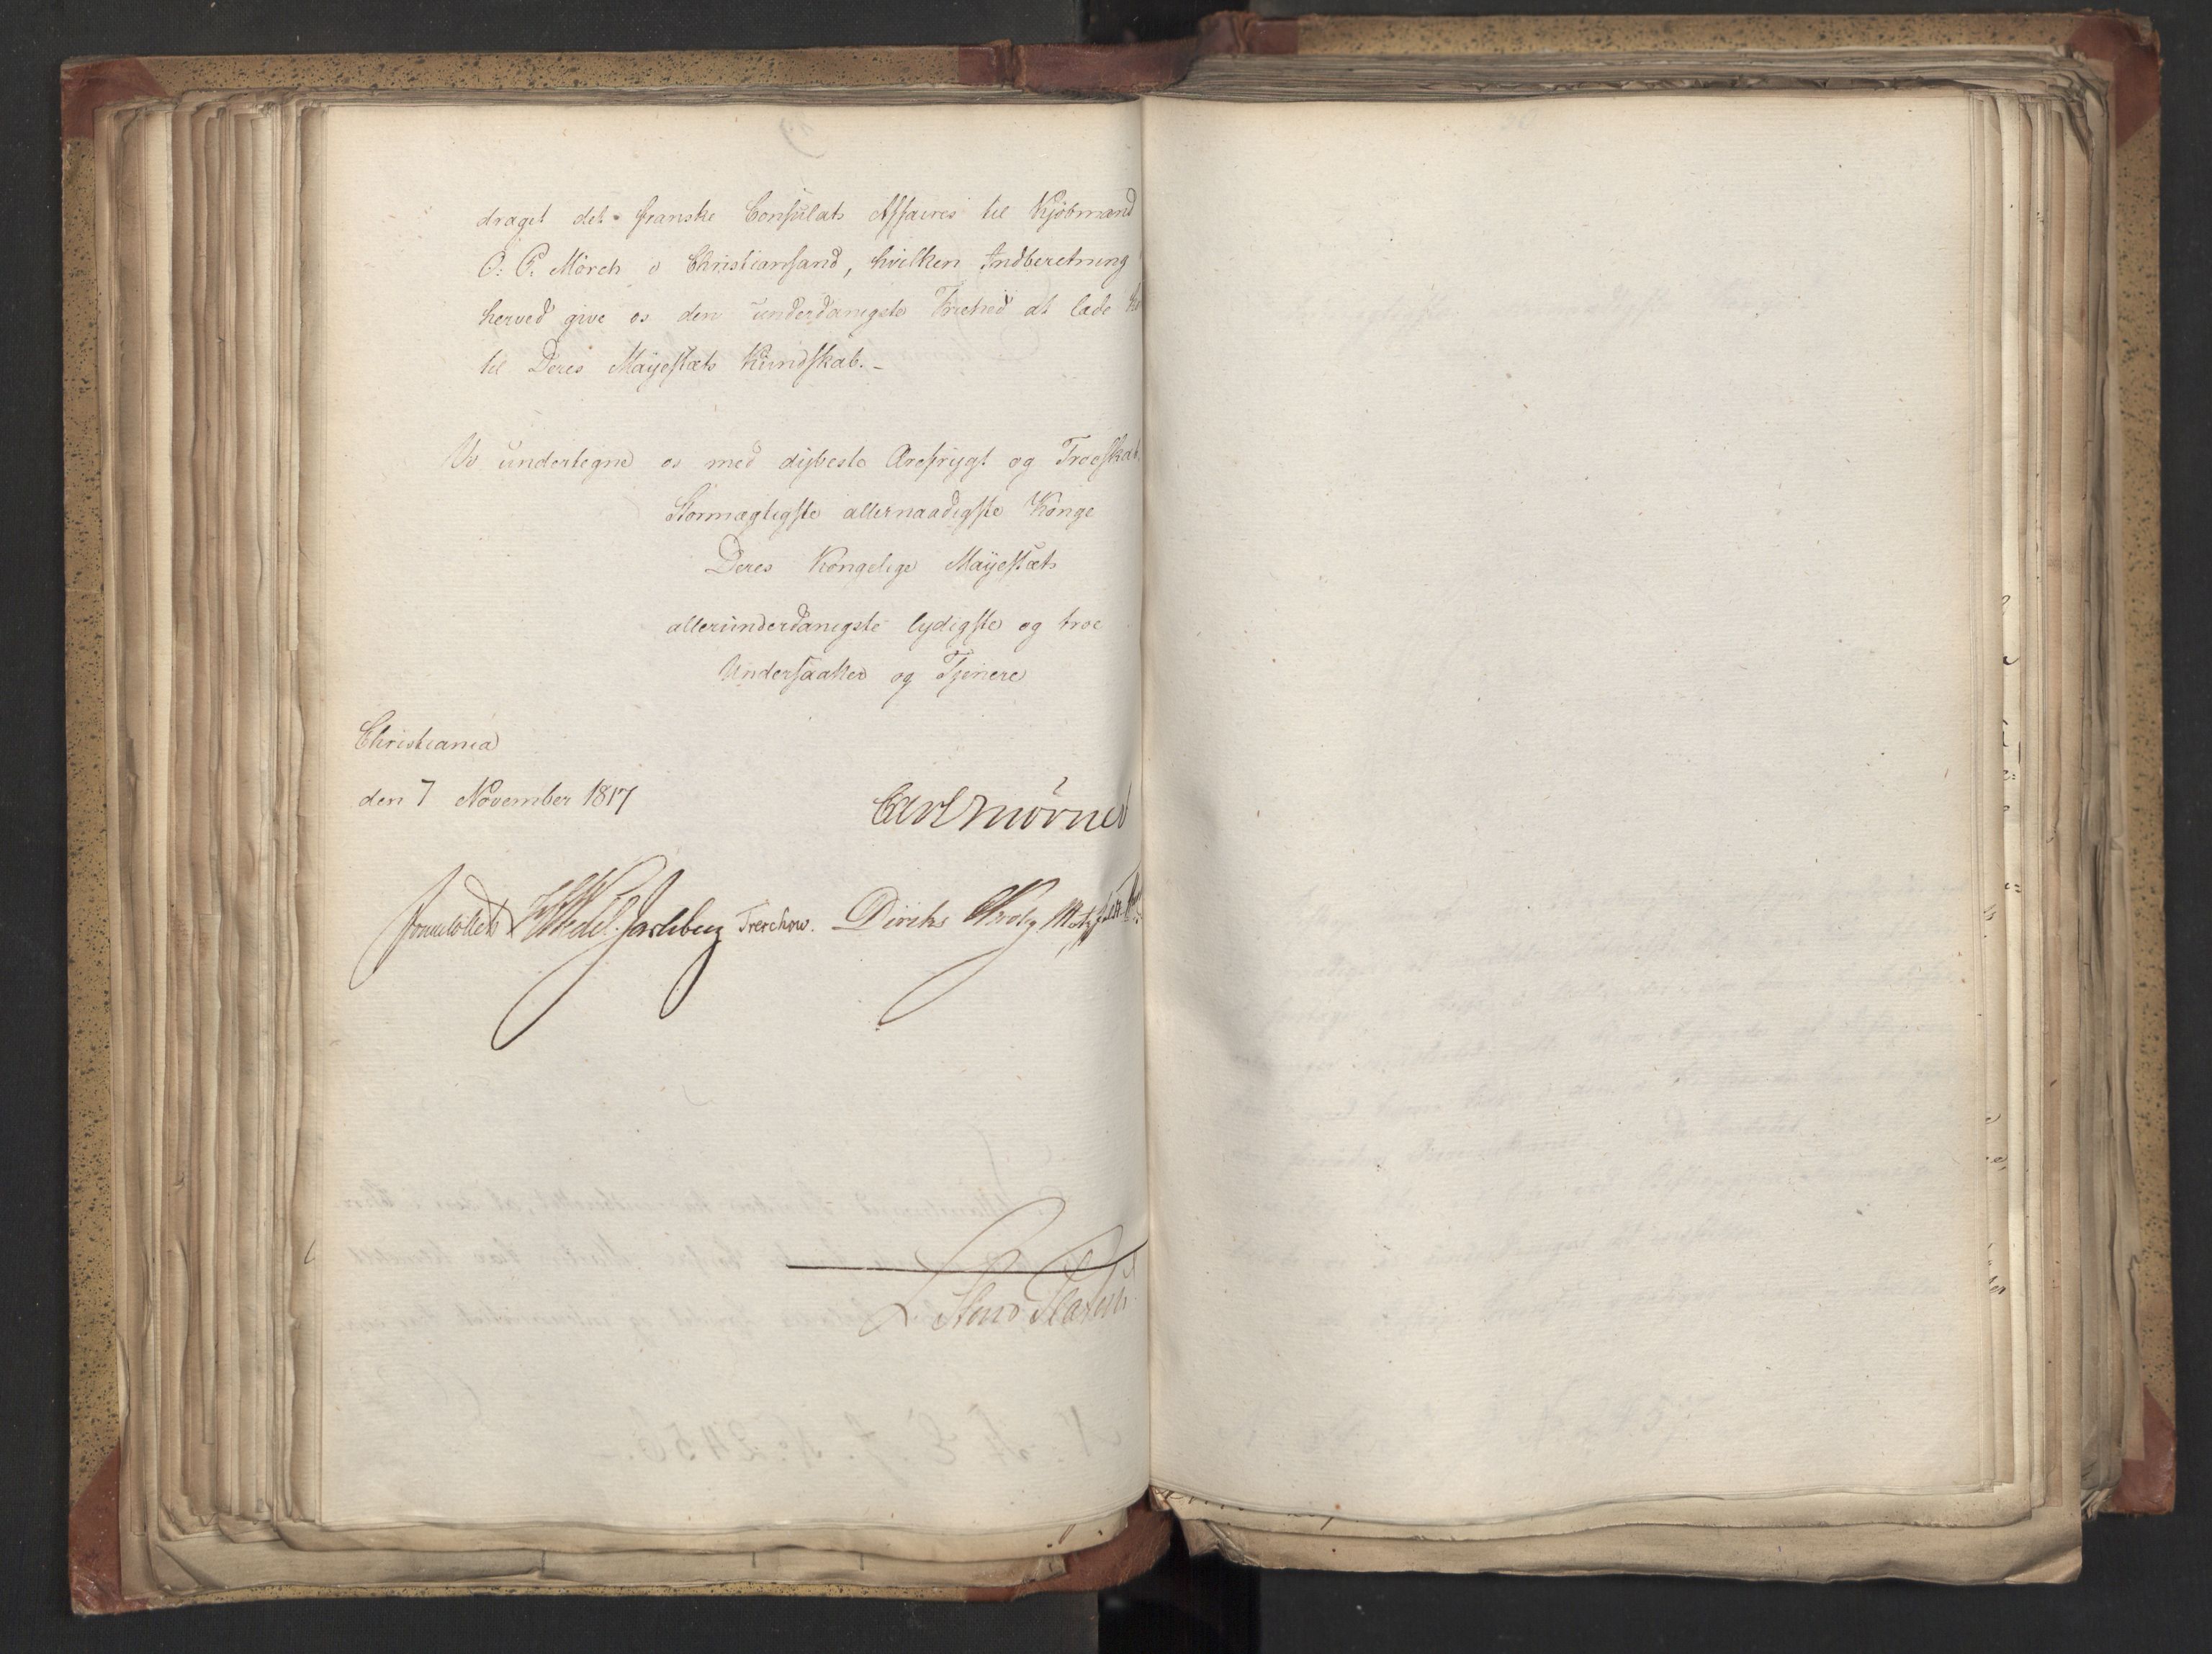 draget det franske Consulats Affaires til Kjöbmand
O: P. Mörch i Christiansand, hvilken Indberetning
herved give os den underdanigste Friehed at lade
til Deres Mayestæts Kundskab.-
Vi undertegne os med dybeste Ærefrygt og Troeskab
Stormægtigste allernaadigste Konge
Deres Kongelige Mayestæts
allerunderdanigste lydigste og troe
Undersaatter og Tjenere
Christiania
den 7 November 1817
Carl Mörner
Sommelhielm Wedel Jarlsberg Treschow. Diriks Krohg Motzfeldt
N: 2450.